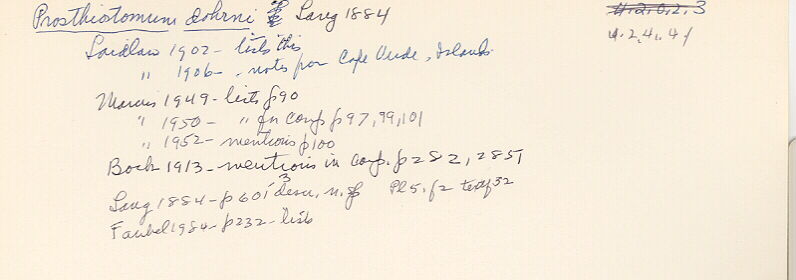 Prosthiostomum dohrni Lang 1884
4.2.0.2.3
4.2.4.41
Laidlaw 1902 - lists this
" 1906 - notes for Cape Verde, Islands
Marcus 1949 - lists p90
" 1950 - " in comp p97,99,101
" 1952 - mentions p100
Bock 1913 - mentions in comp. p282, 285
Lang 1884 - p601 descr, n.sp Pl5, f2 textf32
Faubel 1984 - p232 - lists